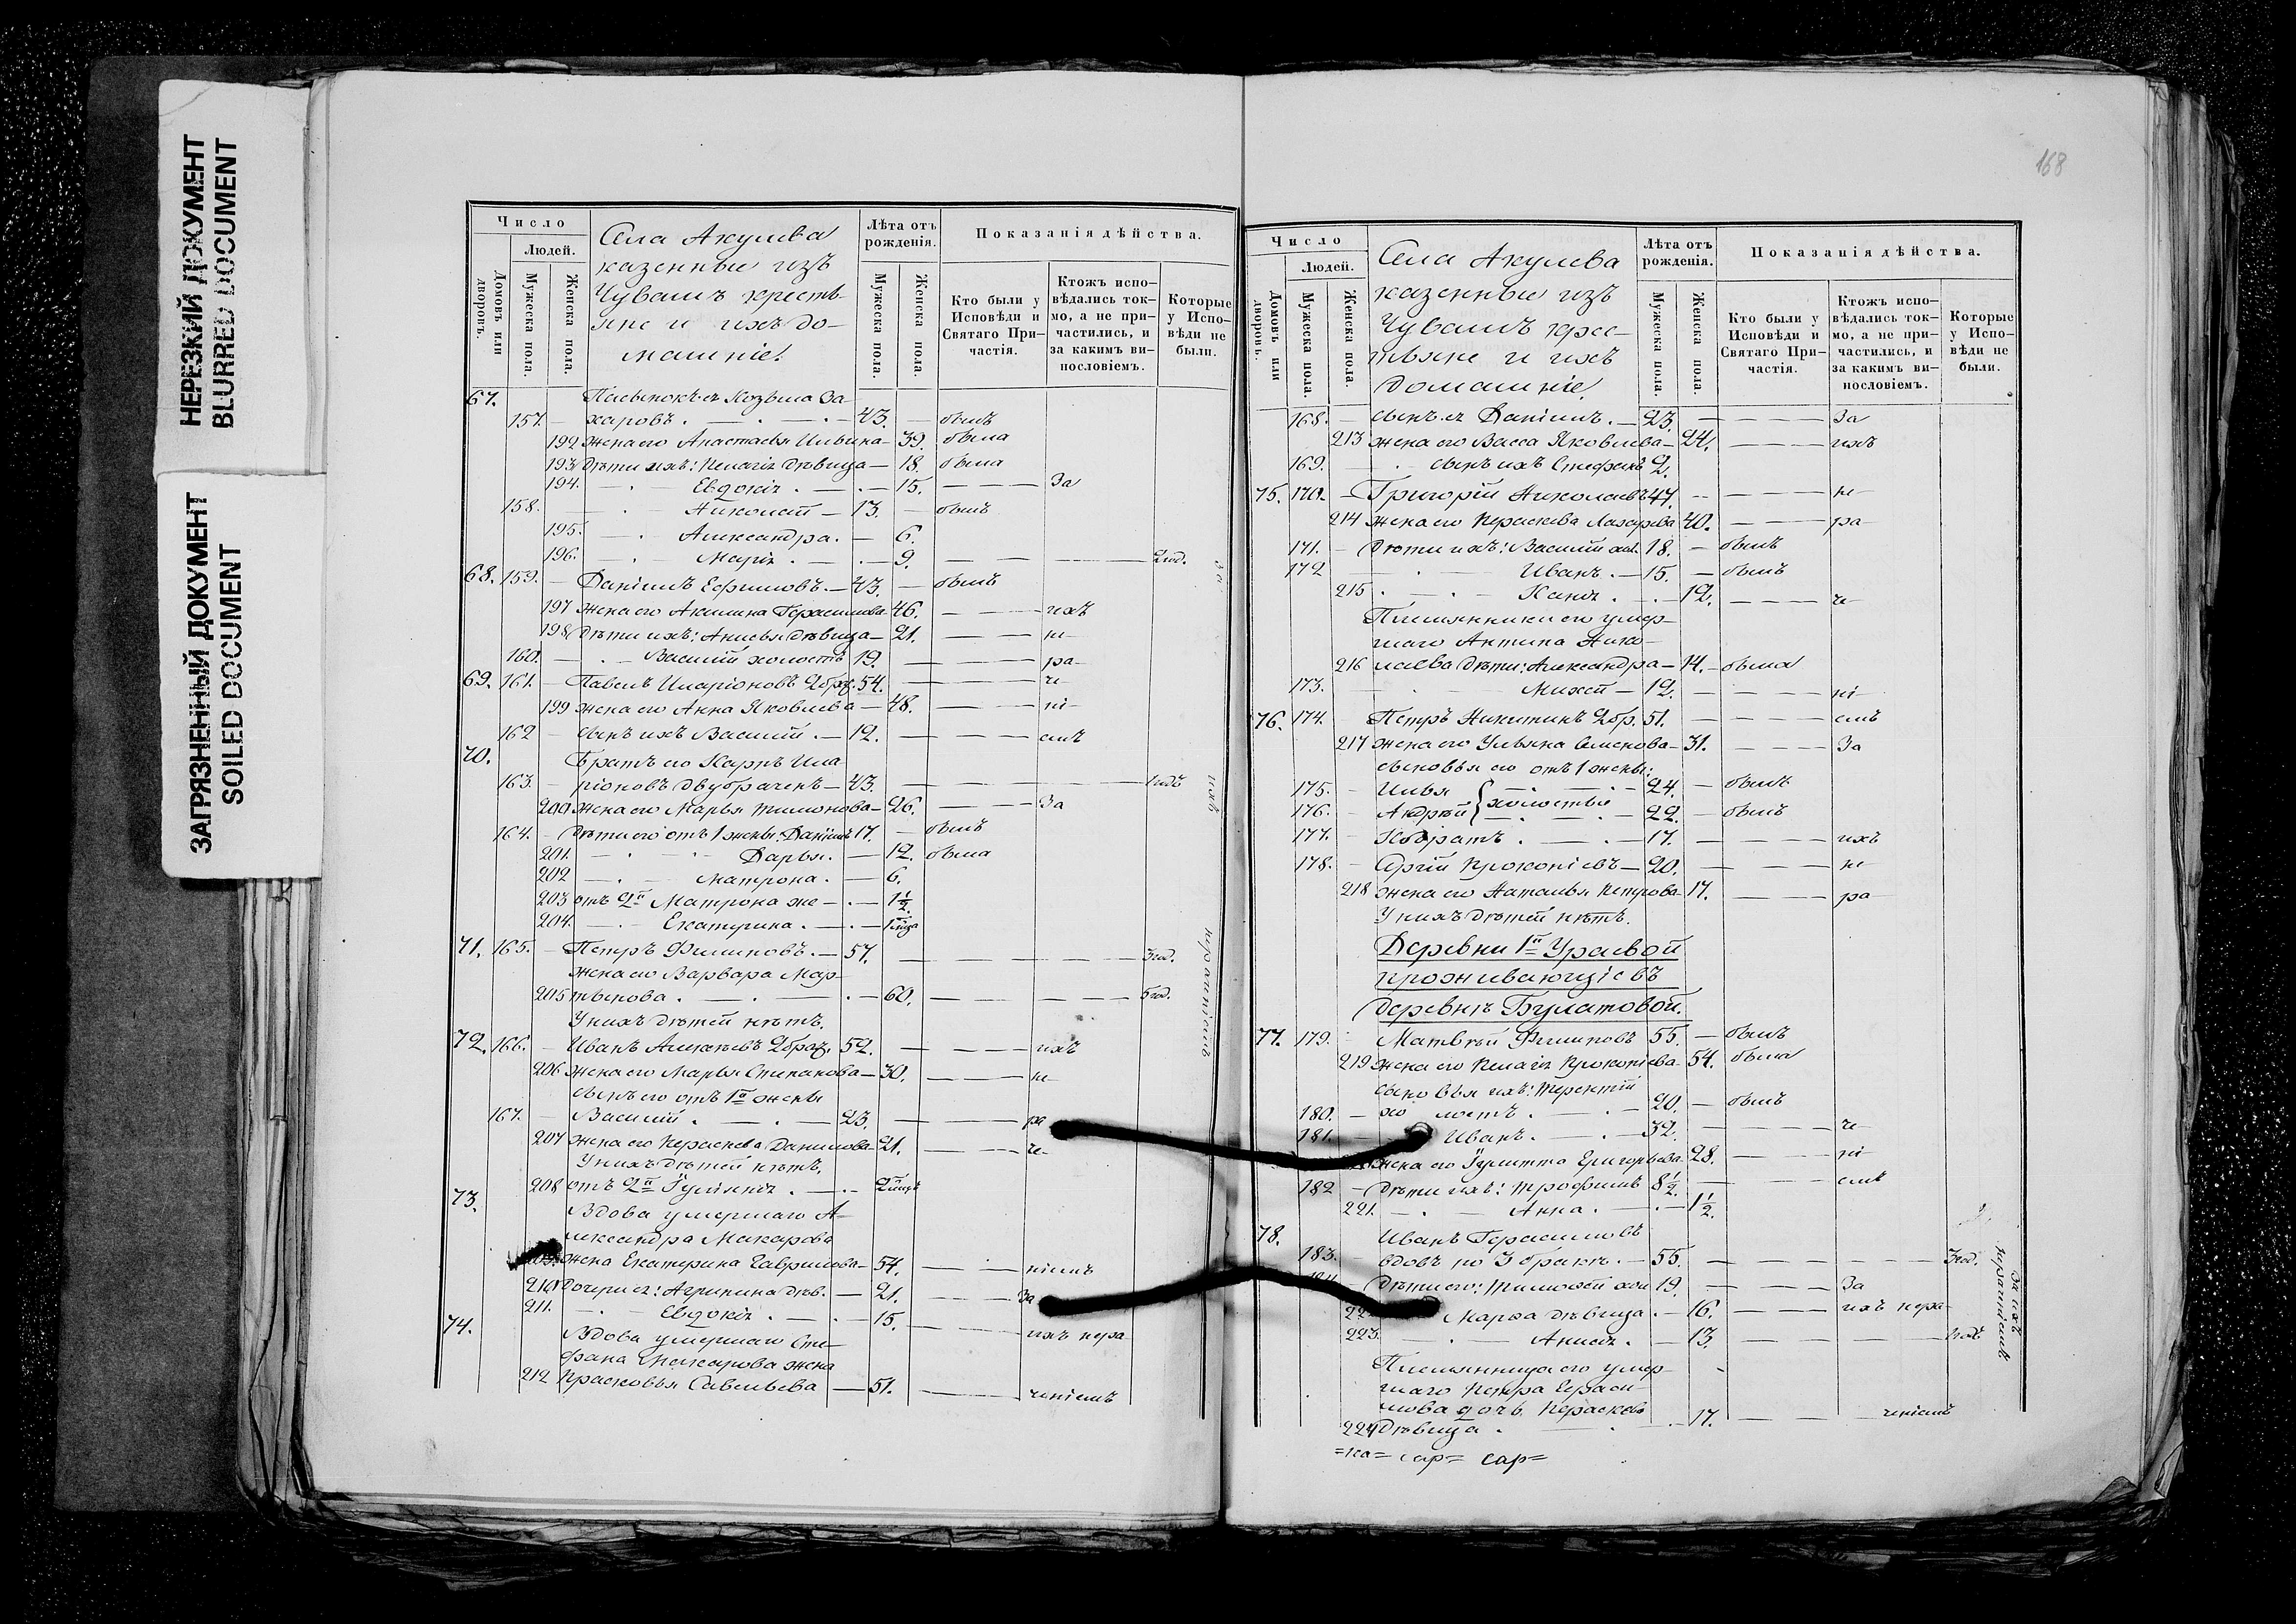 НЕРЕЗКИЙ ДОКУМЕНТ
BLURRED DOCUMENT
ЗАГРЯЗНЕННЫЙ ДОКУМЕНТ
SOILED DOCUMENT
Число
Людей.
Домовъ или дворовъ.
Мужеска пола.
Женска пола.
Села Акулева
казенные изъ
Чувашъ кресть-
яне и ихъ до-
машніе.
Лѣта отъ рожденія.
Мужеска пола.
Женска пола.
Показанія дѣйства.
Кто были у Исповѣди и Святаго При-частія.
Ктожъ испо-вѣдались ток-мо, а не при-частились, и за какимъ ви-нословіемъ.
Которые у Испо-вѣди не были.
67. Пасынокъ ея Козьма За
157. — харовъ . — . — 43. — былъ
192 жена его Анастасья Ильина — 39. была
193 Дѣти ихъ: Пелагія дѣвица — 18. была
194. — Евдокія . — . — 15. — За
158. — Николай — 13. — былъ
195. — Александра. — 6.
196. — Марія . — . — 9. — 2 год.
68. 159. — Даніилъ Ефимовъ. — 43. — былъ
197 жена его Акилина Герасимова 46. — ихъ
198 Дѣти ихъ: Анисья дѣвица — 21. — не
160. — Василій холостъ 19. — ра
69. 161. — Павелъ Иларіоновъ 2 брач. 54. — че
199 жена его Анна Яковлева — 48. — ні
162 — сынъ ихъ Василій . — 12. — емъ
70. Братъ его Карпъ Ила
163. — ріоновъ двубраченъ — 43. — 1 годъ
200 жена его Марья Тимонова — 26. — За
164. — Дѣти его отъ 1 жены: Даніилъ 17. — былъ
201. — Дарья. — 12. была
202 — Матрона. — 6.
203 отъ 2й Матрона же — . — 1½
204. — Екатерина . — . — 1
71. 165. — Петръ Филиповъ. — 57. — 3 год.
жена его Варвара Мар
205 тынова . — . — 60. — 5 год.
У нихъ дѣтей нѣтъ.
72. 166. — Иванъ Алексѣевъ 2 брач. 52. — ихъ
206 жена его Марья Степанова — 30. — не
сынъ его отъ 1й жены
167. — Василій . — . — 23. — ра
207 жена его Пераскева Данилова 21. — че
У нихъ дѣтей нѣтъ.
208 отъ 2й Гуліянія . — . — 2
73. Вдова умершаго А-
лександра Макарова
жена Екатерина Гаврилова — 54. — ніемъ
210 Дочери ея: Агрипина дѣв. — 21. — За
211. — Евдокія . — . — 15. — ихъ нера
74. Вдова умершаго Сте-
фана Макарова жена
212 Прасковья Савельева — 51. — ченіемъ
168
Число
Людей.
Домовъ или дворовъ.
Мужеска пола.
Женска пола.
Села Акулева
казенные изъ
Чувашъ крес-
тьяне и ихъ
домашніе.
Лѣта отъ рожденія.
Мужеска пола.
Женска пола.
Показанія дѣйства.
Кто были у Исповѣди и Святаго При-частія.
Ктожъ испо-вѣдались ток-мо, а не при-частились, и за какимъ ви-нословіемъ.
Которые у Испо-вѣди не были.
168. — сынъ ея Даніилъ. — 23. — За
213 жена его Васса Яковлева — 24. — ихъ
169. — сынъ ихъ Стефанъ 2.
75. 170. — Григорій Николаевъ 47. — не
214 жена его Пераскева Лазарева 40. — ра
171. — Дѣти ихъ: Василій хол. 18. — былъ
172 — Иванъ . — 15. — былъ
215 — . — 12. — че
Племянники его умер-
шаго Антипа Нико-
216 лаева дѣти: Александра — 14. — была
173. — Михей — 12. — ні
76. 174. — Петръ Никитинъ 2 бр. 51. — емъ
217 жена его Ульяна Семенова — 31. — За
сыновья его отъ 1 жены:
175. — Илья } холостые — 24. — былъ
176. — Андрей — 22. — былъ
177. — Кодратъ . — 17. — ихъ
178. — Сергій Прокопіевъ — 20. — не
218 жена его Наталья Петрова 17. — ра
У нихъ дѣтей нѣтъ.
Деревни 1й Ураевой
проживающіе въ
деревнѣ Булатовой.
77. 179. Матвѣй Филиповъ 55. — былъ
219 жена его Пелагія Прокопіева 54. была
сыновья ихъ: Терентій
180. — хо лостъ . — 20. — былъ
181. — Иванъ . — 32. — че
жена его Григорьева 28. — ні
182 — Дѣти ихъ: Трофимъ 8½. — емъ
221. — Анна . — 1½.
78. Иванъ Герасимовъ
183. — вдовъ по 3 бракѣ. — 55. — 3 год.
Дѣти его: Тимофей хол 19. — За
Марѳа дѣвица . — 16. — ихъ нера-
223. — Анисья . — 13. — годъ
Племянница его умер-
шаго Петра Гераси-
мова дочь Пераскева
224 дѣвица . — 17. — ченіемъ
За ихъ
нераченіемъ